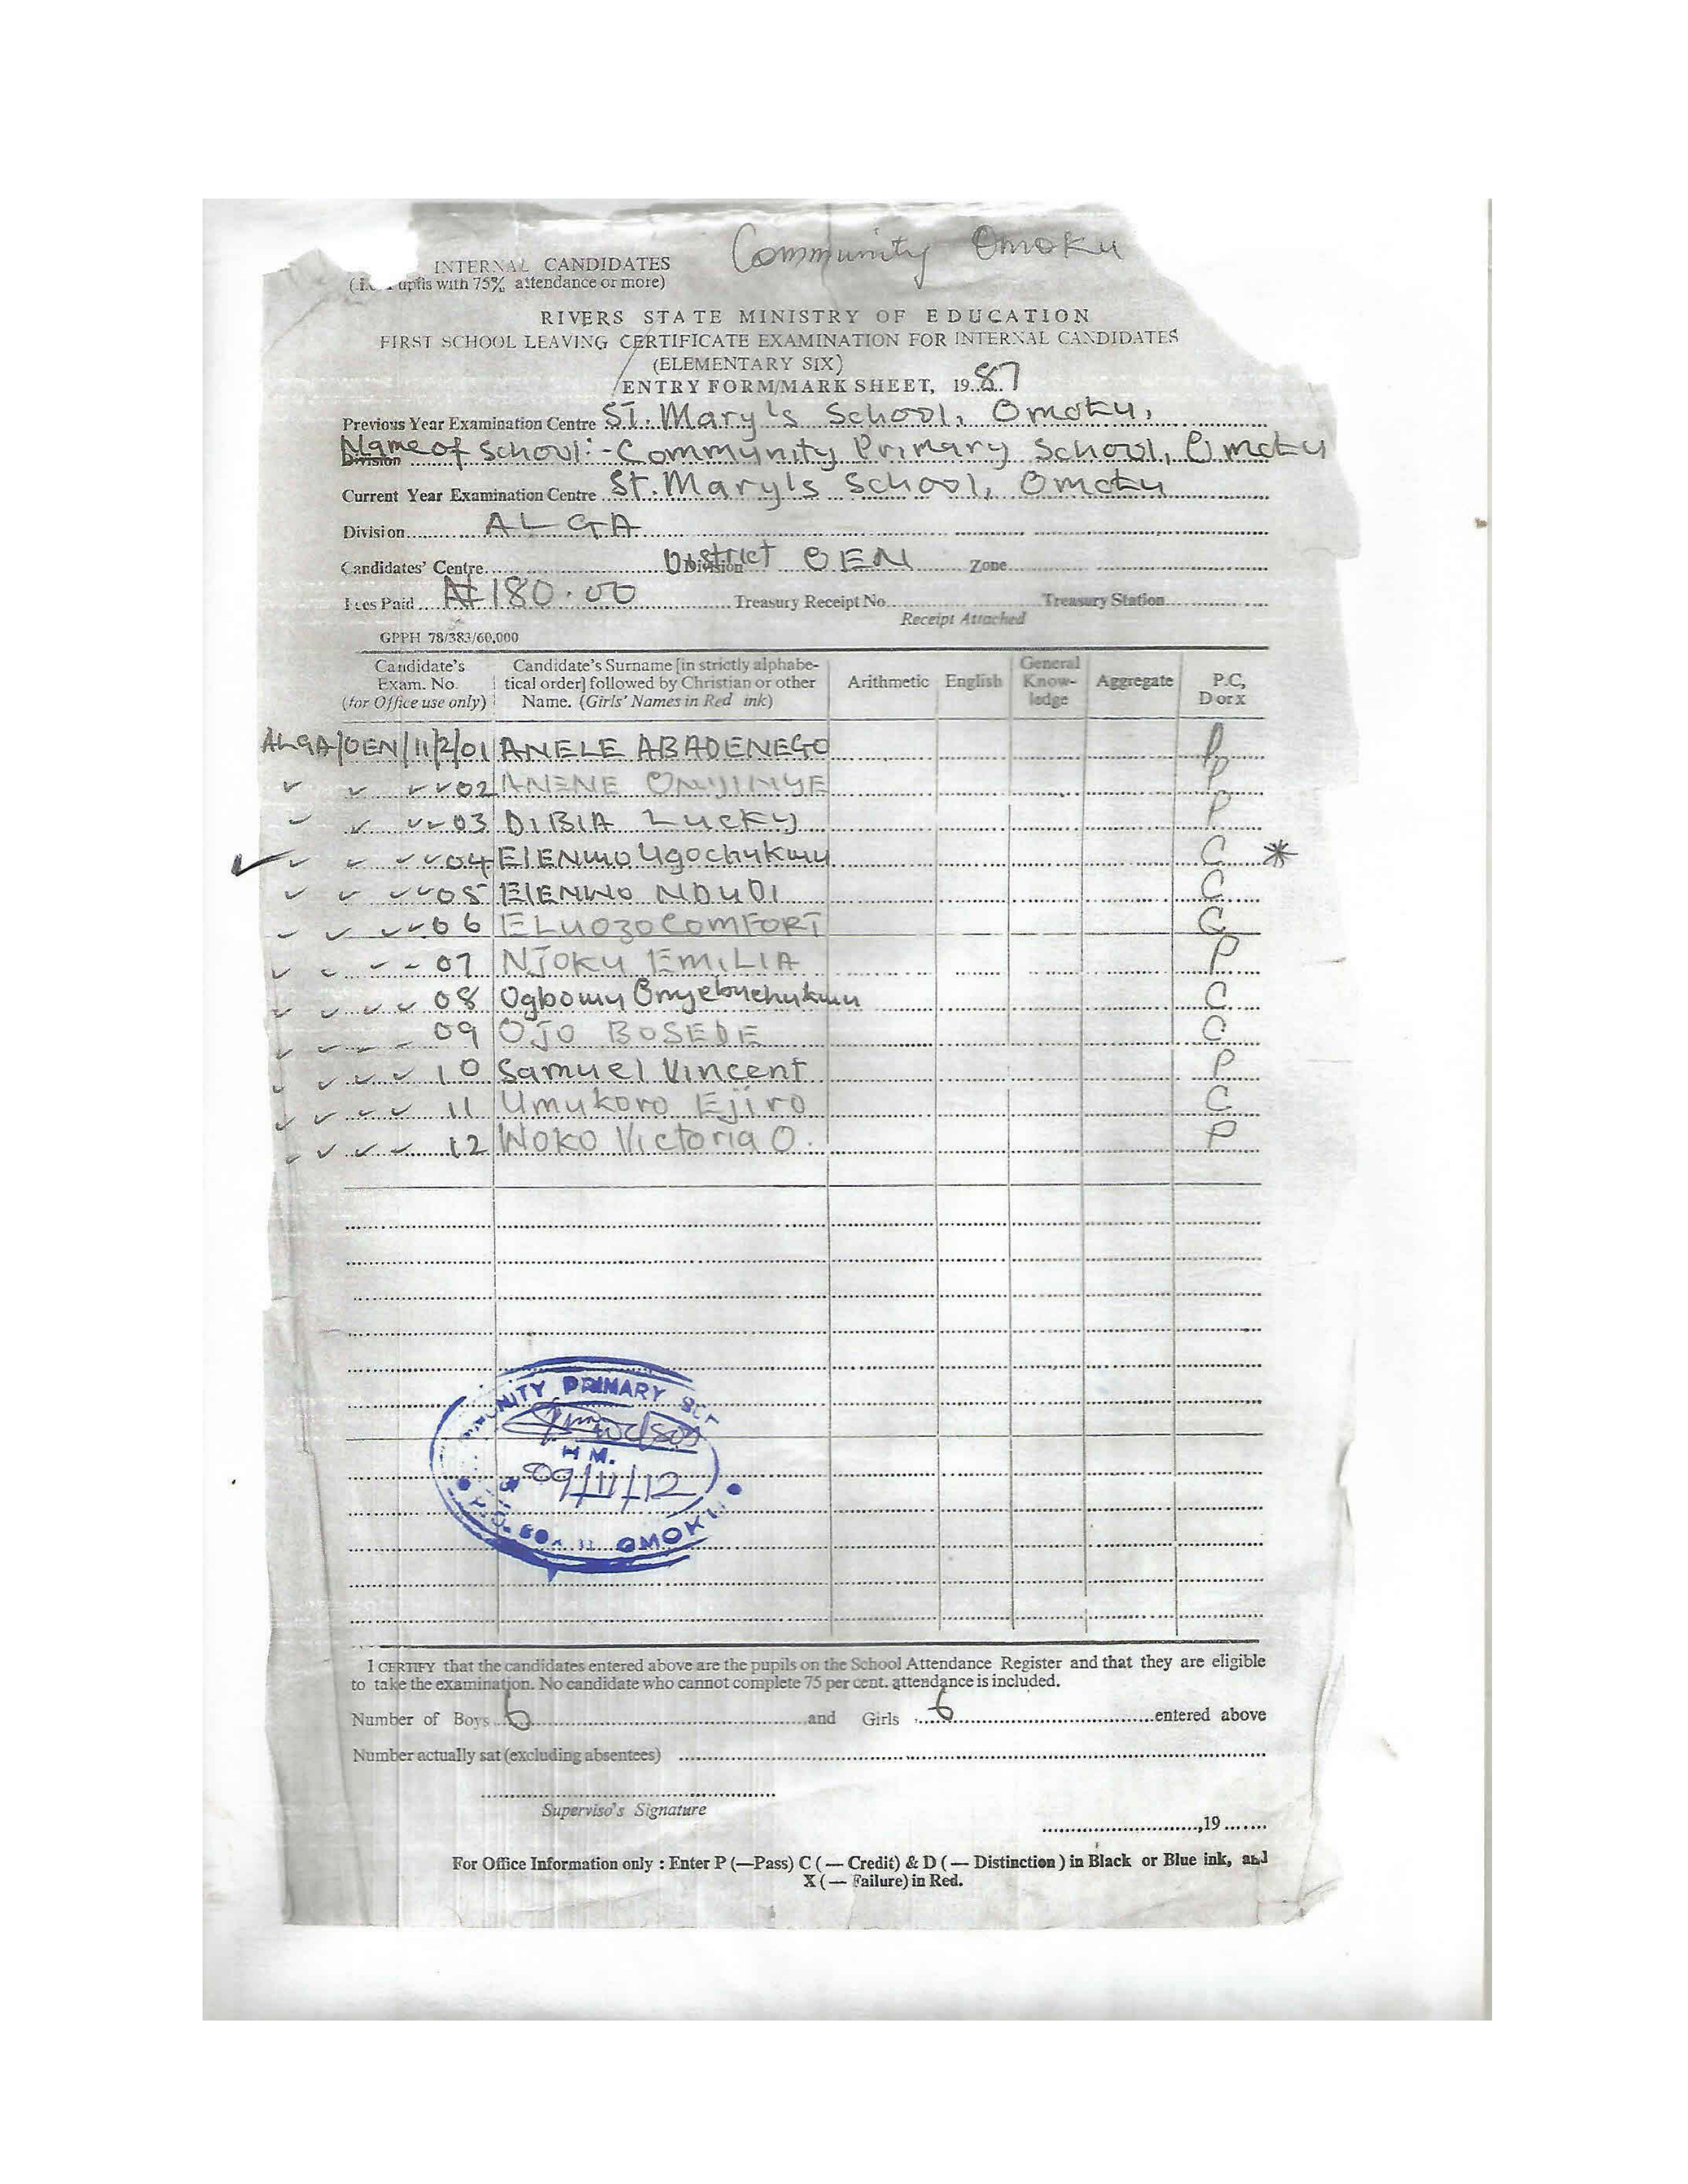 Community Omoku
INTERNAL CANDIDATES
upils with 75% attendance or more)
RIVERS STATE MINISTRY OF EDUCATION
FIRST SCHOOL LEAVING CERTIFICATE EXAMINATION FOR INTERNAL CANDIDATES
(ELEMENTARY SIX)
ENTRY FORM/MARK SHEET, 1987
Previous Year Examination Centre ST. Mary's School, Omoku,
Name of School:- Community Primary School, Omoku
Division
Current Year Examination Centre St. Mary's School, Omoku
Division ALGA
Candidates' Centre District Division OEN Zone
Fees Paid ₦180.00 Treasury Receipt No. Treasury Station
Receipt Attached
GPPH 78/383/60,000
Candidate's Exam. No. (for Office use only) Candidate's Surname [in strictly alphabetical order] followed by Christian or other Name. (Girls' Names in Red ink) Arithmetic English General Know-ledge Aggregate P.C, D or x
ALGA/OEN/11/2/01 ANELE ABADENEGO P
✓ ✓ ✓✓02 ANENE ONYINYE P
✓ ✓ ✓✓03 DIBIA Lucky P
✓ ✓ ✓ ✓✓04 ElENWO Ugochukwu C *
✓ ✓ ✓✓05 ElENWO NDUDI C
✓ ✓ ✓✓06 ELUOZO COMFORT C
✓ ✓ ✓ ✓ 07 NJOKU EMILIA P
✓ ✓ ✓ ✓ 08 Ogbowu Onyebuchukwu C
✓ ✓ ✓ ✓ 09 OJO BOSEDE C
✓ ✓ ✓ ✓ 10 Samuel Vincent P
✓ ✓ ✓ ✓ 11 Umukoro Ejiro C
✓ ✓ ✓ ✓ 12 WOKO Victoria O. P
PRIMARY
H M.
09/11/12
OMOKU
I CERTIFY that the candidates entered above are the pupils on the School Attendance Register and that they are eligible
to take the examination. No candidate who cannot complete 75 per cent. attendance is included.
Number of Boys 6 and Girls 6 entered above
Number actually sat (excluding absentees)
Superviso's Signature
,19
For Office Information only : Enter P (—Pass) C (— Credit) & D (— Distinction) in Black or Blue ink, and
X (— Failure) in Red.